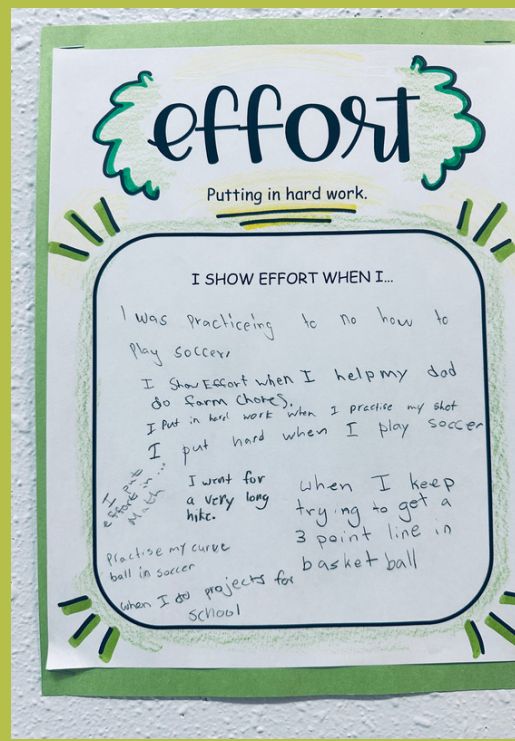 effort
Putting in hard work.
I SHOW EFFORT WHEN I...
I was Practiceing to no how to
Play soccer,
I Show Effort when I help my dad
do farm chores.
I Put in hard work when I practise my shot
I put hard when I play soccer
I put
effort in ...
Math
I went for
a very long
hike.
when I keep
trying to get a
3 point line in
basketball
Practise my curve
ball in soccer
when I do projects for
school